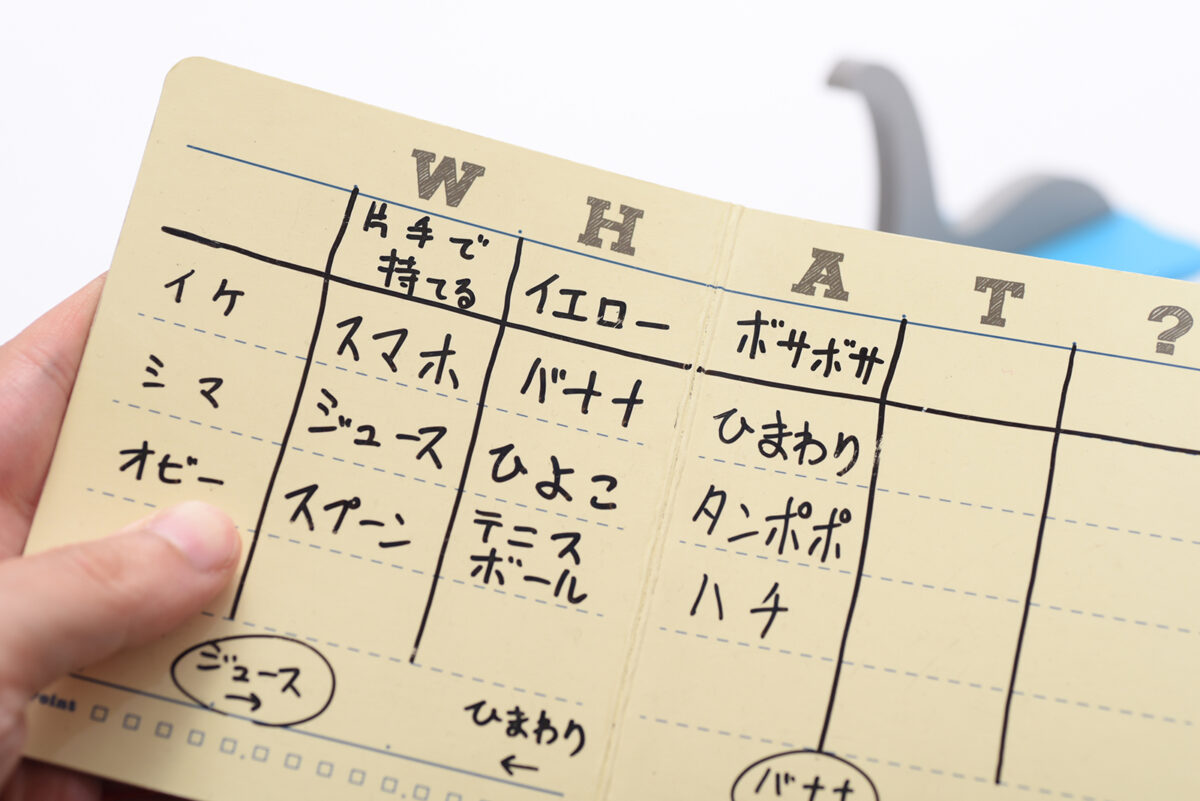 W H A T ?
片手で
持てる
イエロー
ボサボサ
イケ
スマホ
バナナ
ひまわり
シマ
ジュース
ひよこ
タンポポ
オビー
スプーン
テニス
ボール
ハチ
ジュース
→
ひまわり
←
バナナ
Point